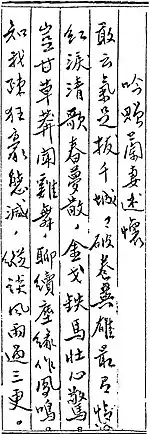 吟贈蘭妻述懷
敢云氣足拔千城，破卷無雄最有情
紅淚清歌春夢散，金戈鉄馬壯心驚。
豈甘草莽聞雞舞，聊續塵緣作鳳鳴。
知我疎狂豪態減，縱談風雨過三更。